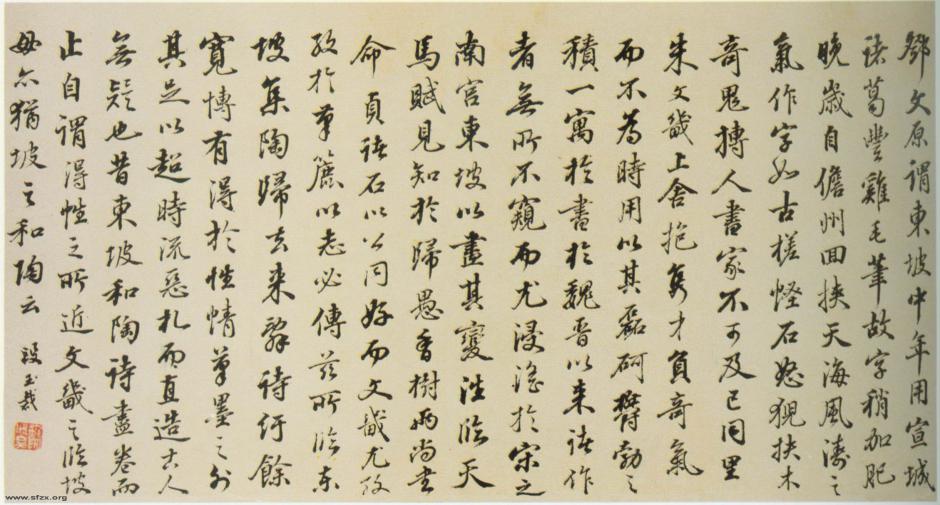 鄧文原謂東坡中年用宣城
諸葛豐雞毛筆故字稍加肥
晚歲自儋州回挾天海風濤之
氣作字如古槎怪石怒猊扶木
奇鬼搏人書家不可及已同里
朱文畿上舍抱雋才負奇氣
而不為時用以其磊砢鬱勃之
積一寓於書於魏晉以來諸作
者無所不窺而尤浸淫於宋之
南宮東坡以盡其變性臨天
馬賦見知於歸愚香樹兩尚書
命貞諸石以公同好而文畿尤
孜於草麓以志必傳茲所臨東
坡集陶歸去來辭詩紆餘
寬博有得於性情筆墨之外
其足以超時流惡札而直造古人
無疑也昔東坡和陶詩盡卷而
止自謂得性之所近文畿之臨坡
毋亦猶坡之和陶云 段玉裁
www.sfzx.org